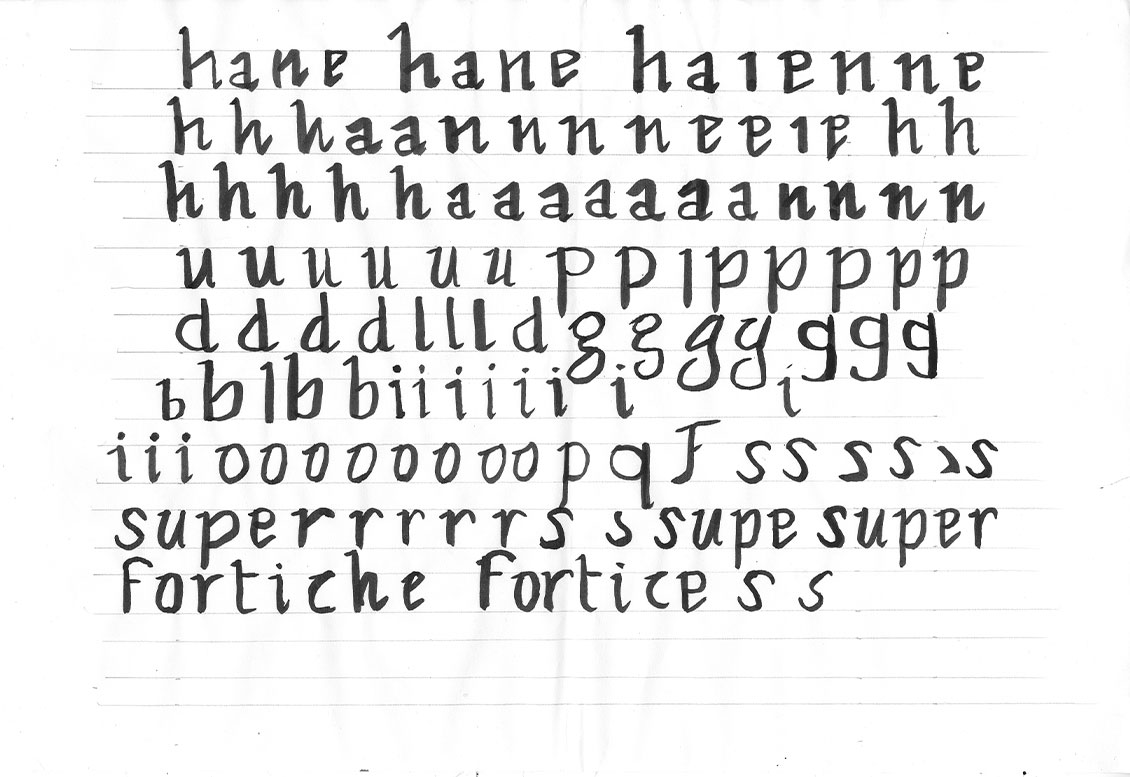 hane hane haienne
h h h a a n n n n n e e e i e h h
h h h h h a a a a a a a n n n n
u u u u u u p p l p p p p p
d d d d l l l d g g g g g g g
b b l b b i i i i i i i i
i i i o o o o o o o o o p q F s s s s s s
super r r r r s s supe super
fortiche fortice s s